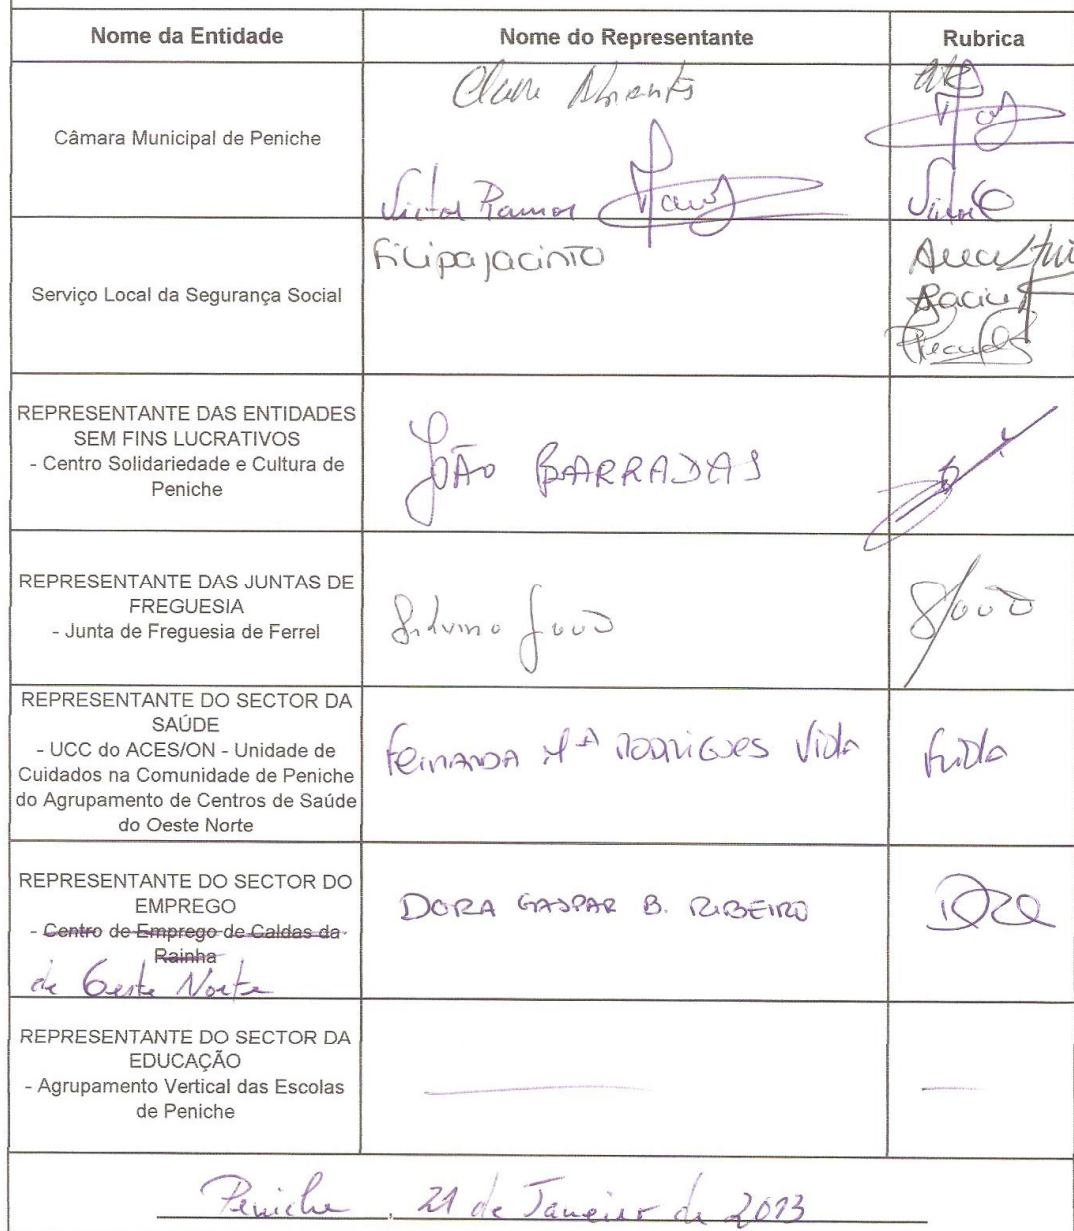 Nome da Entidade Nome do Representante Rubrica
Câmara Municipal de Peniche
Victor Ramos
Serviço Local da Segurança Social
Filipa Jacinto
REPRESENTANTE DAS ENTIDADES
SEM FINS LUCRATIVOS
- Centro Solidariedade e Cultura de
Peniche
JOÃO BARRADAS
REPRESENTANTE DAS JUNTAS DE
FREGUESIA
- Junta de Freguesia de Ferrel
Silvino João
REPRESENTANTE DO SECTOR DA
SAÚDE
- UCC do ACES/ON - Unidade de
Cuidados na Comunidade de Peniche
do Agrupamento de Centros de Saúde
do Oeste Norte
Fernanda Mª Rodrigues Vida
REPRESENTANTE DO SECTOR DO
EMPREGO
- Centro de Emprego de Caldas da
Rainha
de Oeste Norte
DORA GASPAR B. RIBEIRO
REPRESENTANTE DO SECTOR DA
EDUCAÇÃO
- Agrupamento Vertical das Escolas
de Peniche
Peniche, 21 de Janeiro de 2013